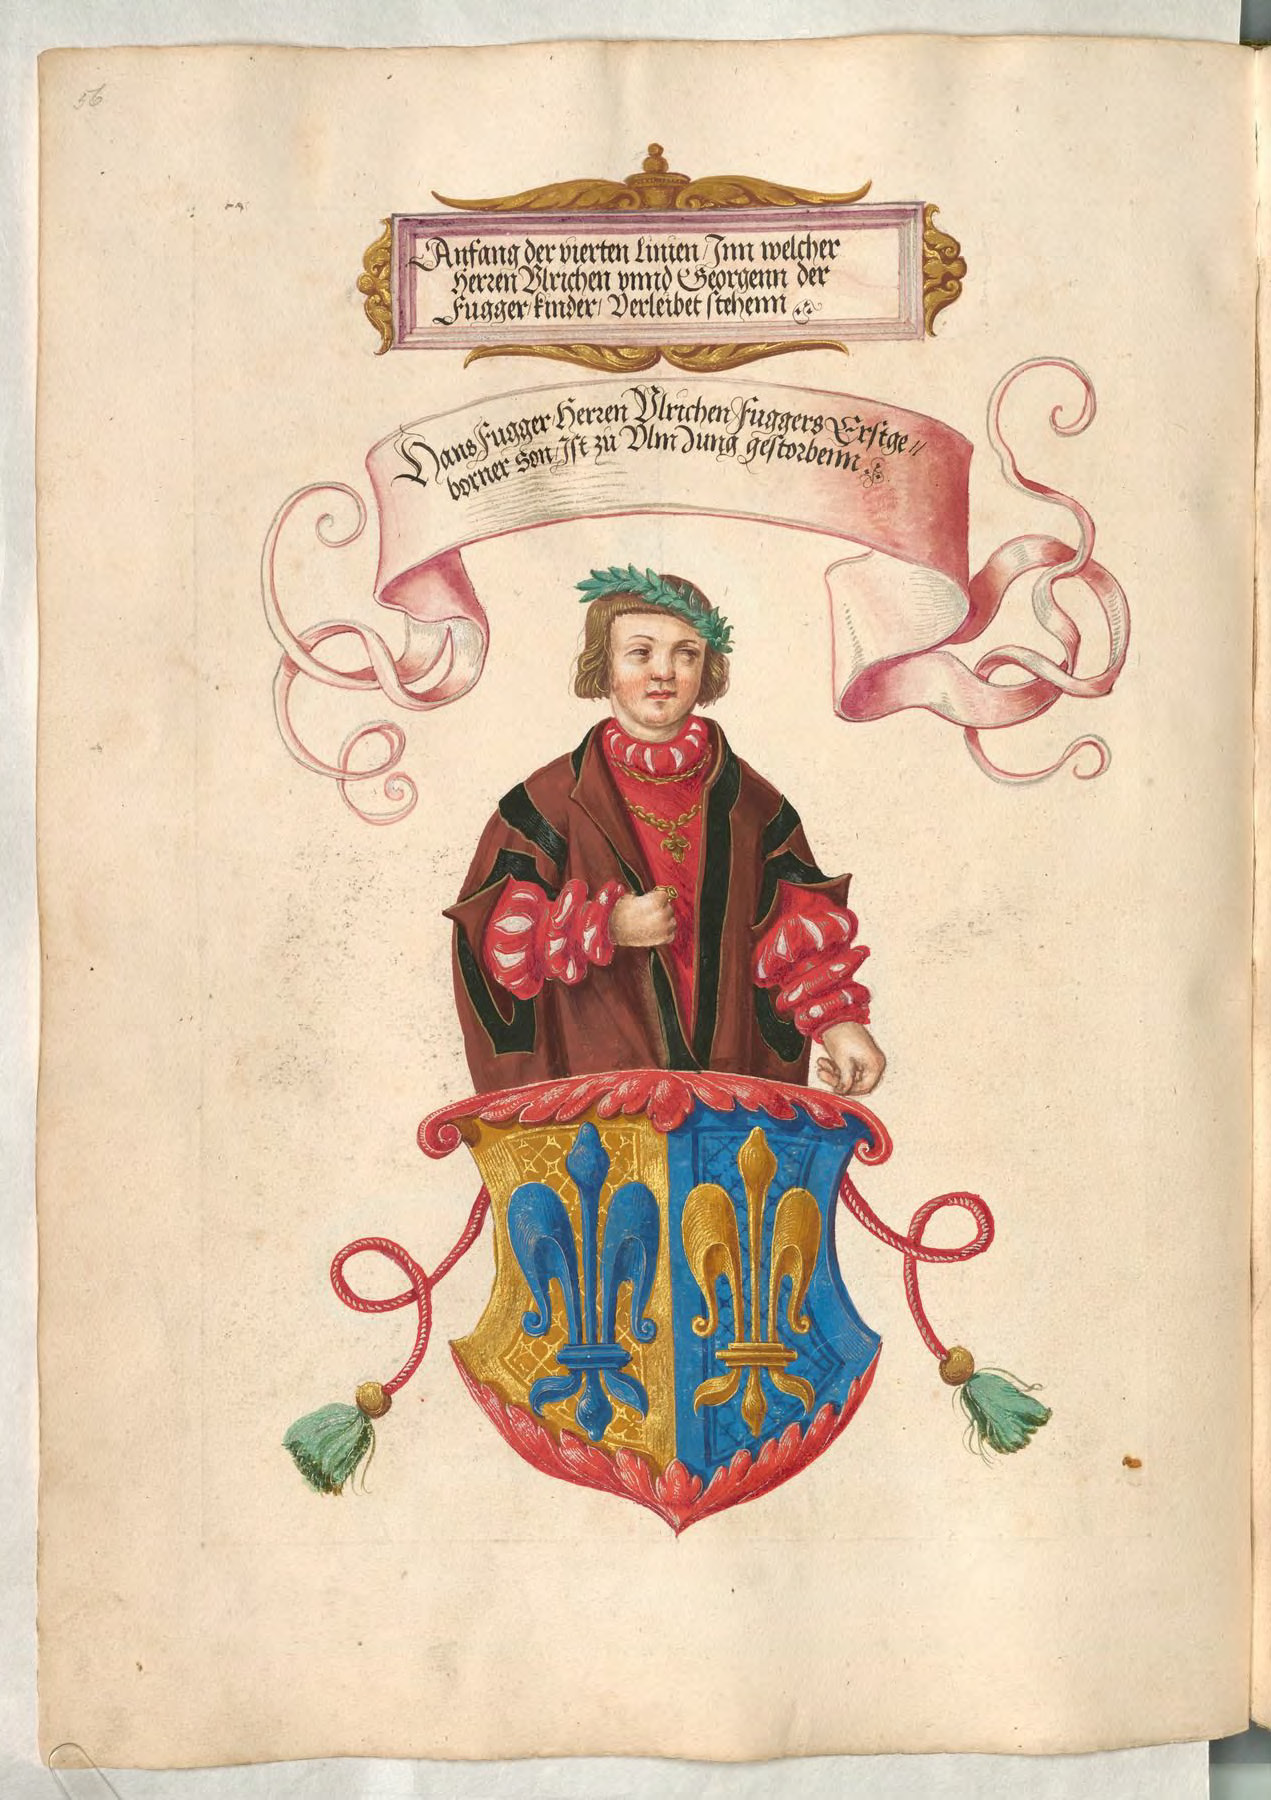 56
Anfang der vierten Linien / Inn welcher
Herren Ulrichen vnnd Georgenn der
Fugger / kinder / Verleibet stehenn
Hans Fugger Herren Ulrichen Fuggers Erstge //
borner Son / Ist zu Ulm Jung gestorbenn